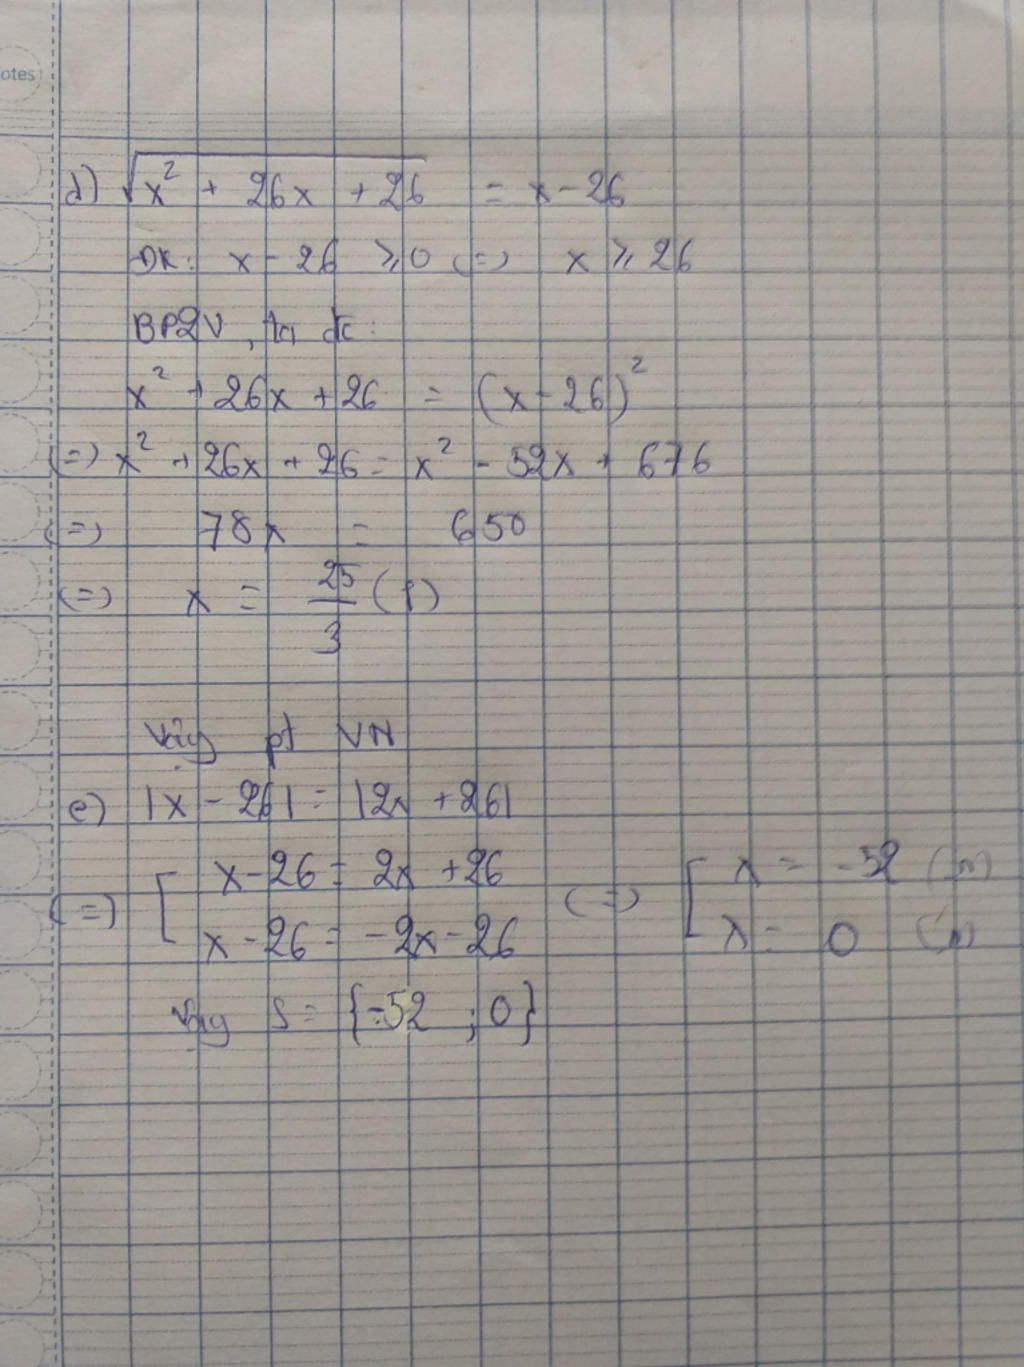 otes
d) √(x² + 26x + 26) = x - 26
ĐK: x - 26 ⩾ 0 (=) x ⩾ 26
BP2V, ta đc:
x² + 26x + 26 = (x - 26)²
(=) x² + 26x + 26 = x² - 52x + 676
(=) 78x = 650
(=) x = 25/3 (l)
Vậy pt VN
e) |x - 26| = |2x + 26|
(=) [ x - 26 = 2x + 26 (=) [ x = -52 (n)
x - 26 = -2x - 26 x = 0 (n)
Vậy S = {-52 ; 0}